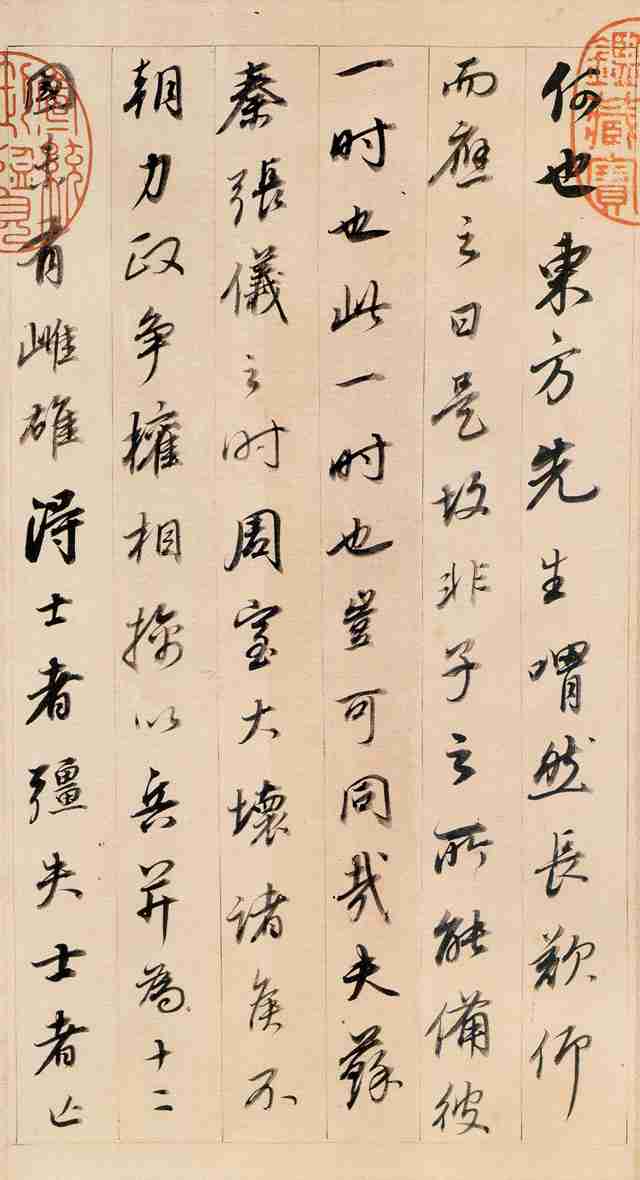 鑑藏寶
何也東方先生喟然長歎仰
而應之曰是故非子之所能備彼
一時也此一時也豈可同哉夫蘇
秦張儀之時周室大壞諸侯不
朝力政争權相擒以兵并為十二
國未有雌雄得士者彊失士者亡